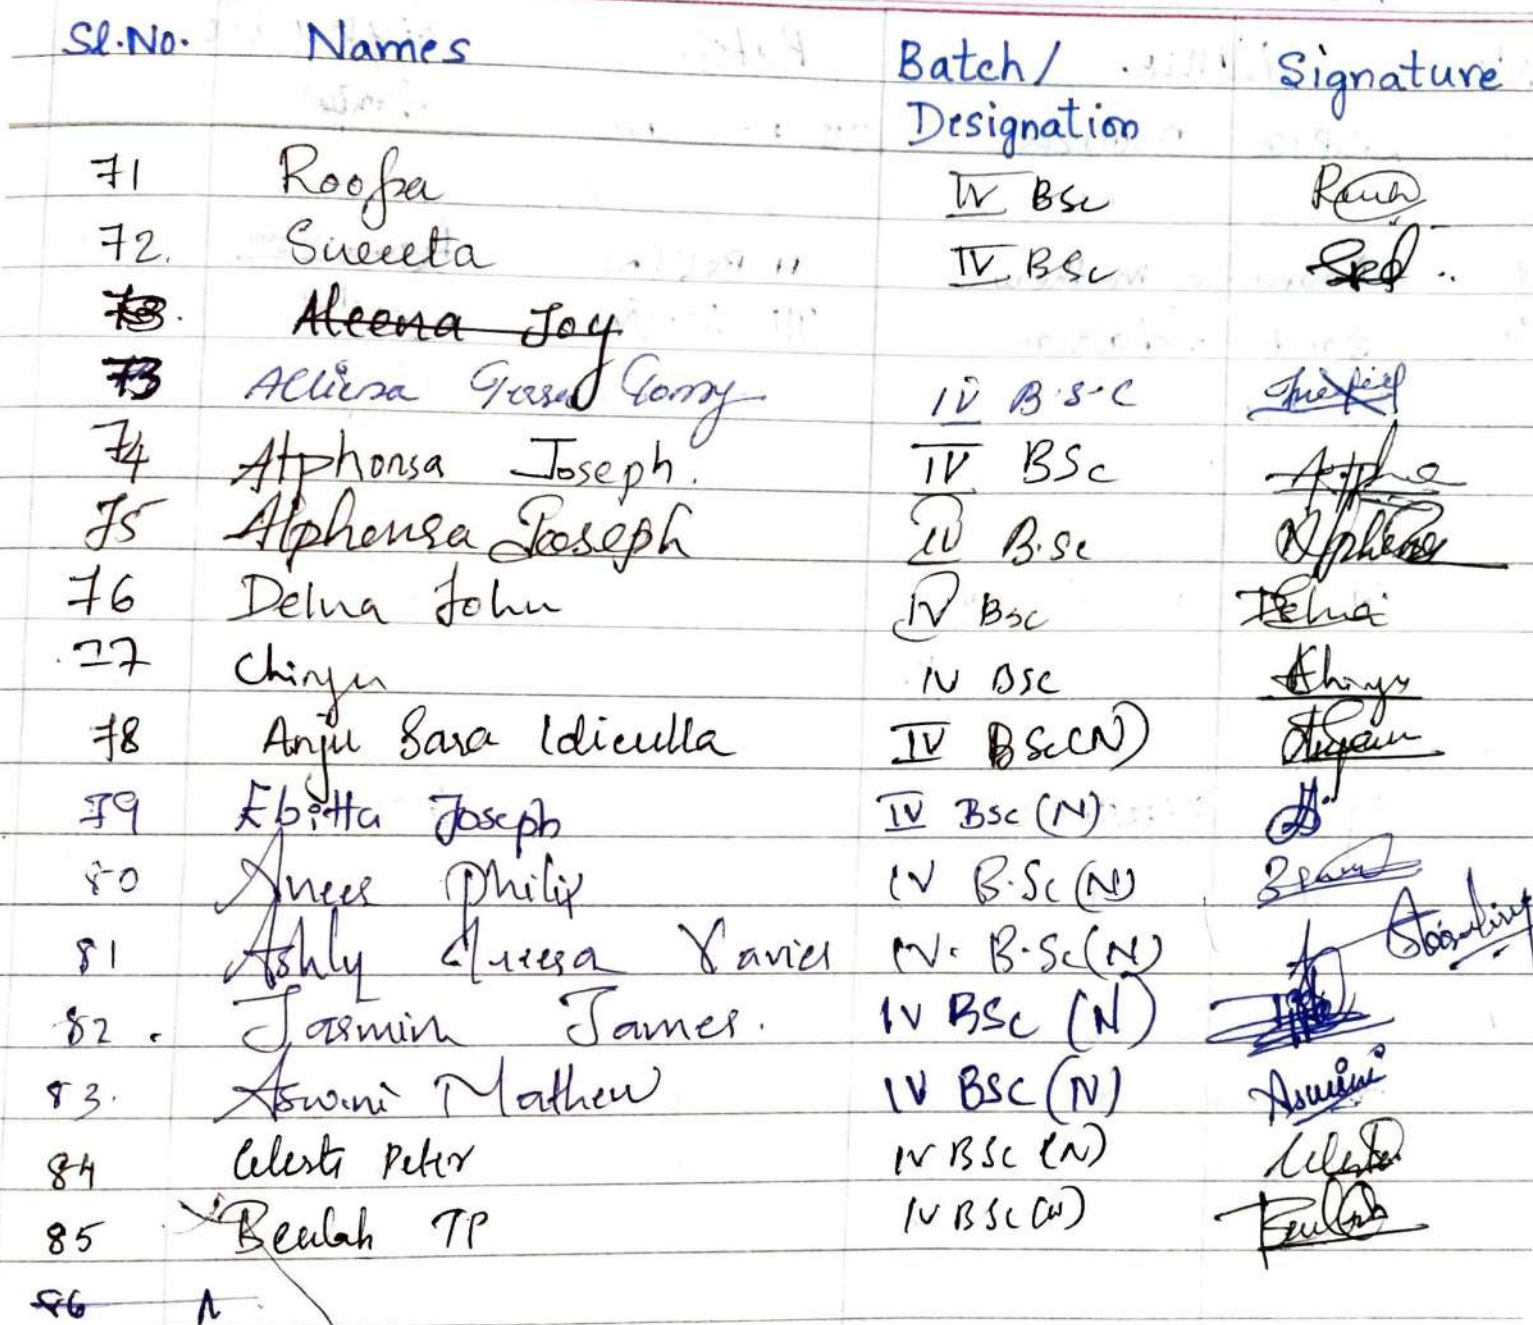 Sl.No. Names Batch/ Designation Signature
71 Roopa IV BSc
72. Sueeeta IV BSc
73. Aleena Joy
73 IV B.S.C
74 Alphonsa Joseph. IV BSc Alpha
75 Alphonsa Joseph IV B.Sc Alphonsa
76 Delna John IV BSc Delna
77 Chinju IV BSc Chinju
78 Anju Sara Idiculla IV BSc(N)
79 Ebitta Joseph IV BSc (N)
80 Anees Philip IV B.Sc (N)
81 Ashly Treesa Xavier IV. B.Sc(N)
82. Jasmin James. IV BSc (N)
83. Aswini Mathew IV BSC (N) Aswini
84 Celeste Peter IV BSc (N) Celeste
85 Beulah TP IV BSc (N) Beulah
86 A